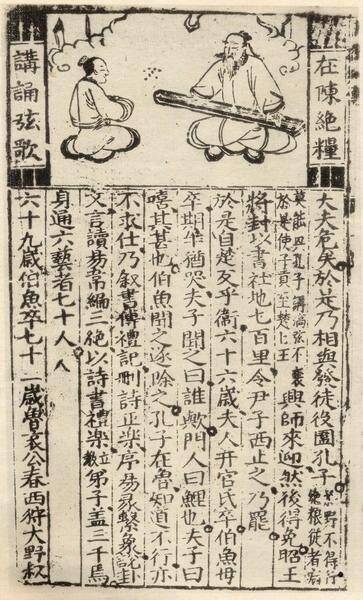 在陳絕糧
講誦弦歌
大夫危矣於是乃相與發徒役圍孔子於野不得行絕糧徒者病
莫能興孔子講誦弦不衰於是使子貢至楚王興師來迎然後得免昭王
將封以書社地七百里令尹子西止之乃罷
於是自楚反乎衛六十六歲夫人开官氏卒伯魚母
卒期年猶哭夫子聞之曰誰歟門人曰鯉也夫子曰
嘻其甚也伯魚聞之遂除之孔子在魯知道不行亦
不求仕乃叙書傳禮記刪詩正樂序易彖繫象說卦
文言讀易韋編三絕以詩書禮樂教弟子蓋三千焉
身通六藝者七十人
六十九歲伯魚卒七十一歲魯哀公春西狩大野叔